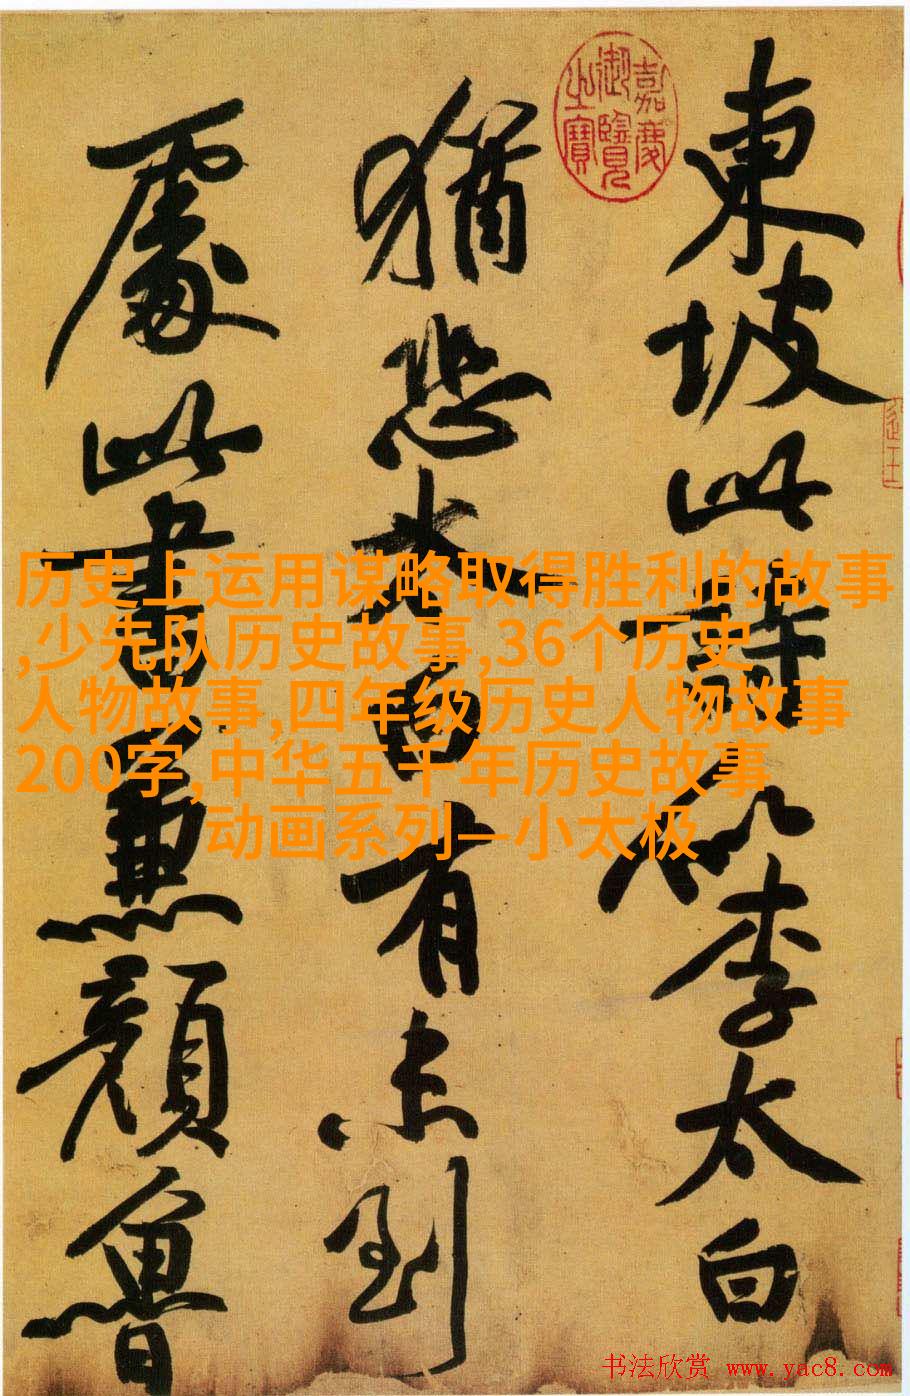 東坡此詩似李太白
嘉慶
御覽
之寶
猶恐太白有未到
處此書兼顏魯
历史上运用谋略取得胜利的故事
,少先队历史故事,36个历史
人物故事,四年级历史人物故事
200字,中华五千年历史故事
动画系列—小太极
书法欣赏 www.yac8.com